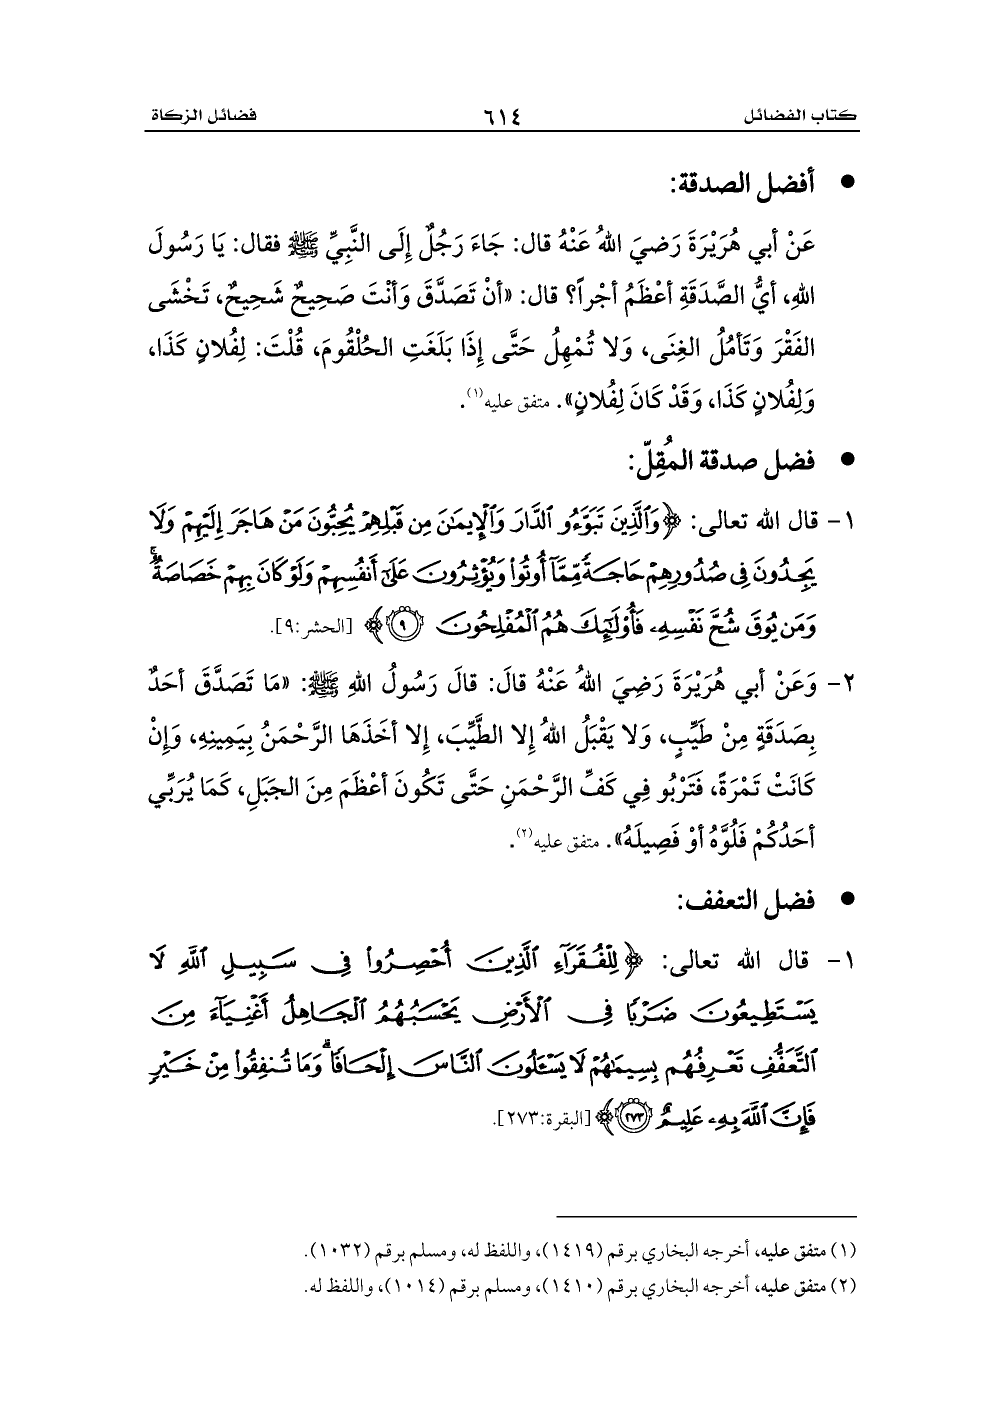 كتاب الفضائل ٦١٤ فضائل الزكاة
• أفضل الصدقة:
عَنْ أبي هُرَيْرَةَ رَضيَ اللهُ عَنْهُ قال: جَاءَ رَجُلٌ إِلَى النَّبِيِّ ﷺ فقال: يَا رَسُولَ
اللهِ، أيُّ الصَّدَقَةِ أعْظَمُ أجْراً؟ قال: «أنْ تَصَدَّقَ وَأنْتَ صَحِيحٌ شَحِيحٌ، تَخْشَى
الفَقْرَ وَتَأمُلُ الغِنَى، وَلا تُمْهِلُ حَتَّى إِذَا بَلَغَتِ الحُلْقُومَ، قُلْتَ: لِفُلانٍ كَذَا،
وَلِفُلانٍ كَذَا، وَقَدْ كَانَ لِفُلانٍ». متفق عليه(١).
• فضل صدقة المُقِلّ:
١- قال الله تعالى: ﴿وَٱلَّذِينَ تَبَوَّءُو ٱلدَّارَ وَٱلْإِيمَٰنَ مِن قَبْلِهِمْ يُحِبُّونَ مَنْ هَاجَرَ إِلَيْهِمْ وَلَا
يَجِدُونَ فِى صُدُورِهِمْ حَاجَةً مِّمَّآ أُوتُوا۟ وَيُؤْثِرُونَ عَلَىٰٓ أَنفُسِهِمْ وَلَوْ كَانَ بِهِمْ خَصَاصَةٌ ۚ
وَمَن يُوقَ شُحَّ نَفْسِهِۦ فَأُو۟لَٰٓئِكَ هُمُ ٱلْمُفْلِحُونَ ٩﴾ [الحشر:٩].
٢- وَعَنْ أبي هُرَيْرَةَ رَضِيَ اللهُ عَنْهُ قالَ: قالَ رَسُولُ اللهِ ﷺ: «مَا تَصَدَّقَ أحَدٌ
بِصَدَقَةٍ مِنْ طَيِّبٍ، وَلا يَقْبَلُ اللهُ إلا الطَّيِّبَ، إلا أخَذَهَا الرَّحْمَنُ بِيَمِينِهِ، وَإِنْ
كَانَتْ تَمْرَةً، فَتَرْبُو فِي كَفِّ الرَّحْمَنِ حَتَّى تَكُونَ أعْظَمَ مِنَ الجَبَلِ، كَمَا يُرَبِّي
أحَدُكُمْ فَلُوَّهُ أوْ فَصِيلَهُ». متفق عليه(٢).
• فضل التعفف:
١- قال الله تعالى: ﴿لِلْفُقَرَآءِ ٱلَّذِينَ أُحْصِرُوا۟ فِى سَبِيلِ ٱللَّهِ لَا
يَسْتَطِيعُونَ ضَرْبًا فِى ٱلْأَرْضِ يَحْسَبُهُمُ ٱلْجَاهِلُ أَغْنِيَآءَ مِنَ
ٱلتَّعَفُّفِ تَعْرِفُهُم بِسِيمَٰهُمْ لَا يَسْـَٔلُونَ ٱلنَّاسَ إِلْحَافًا ۗ وَمَا تُنفِقُوا۟ مِنْ خَيْرٍ
فَإِنَّ ٱللَّهَ بِهِۦ عَلِيمٌ ٢٧٣﴾ [البقرة:٢٧٣].
(١) متفق عليه، أخرجه البخاري برقم (١٤١٩)، واللفظ له، ومسلم برقم (١٠٣٢).
(٢) متفق عليه، أخرجه البخاري برقم (١٤١٠)، ومسلم برقم (١٠١٤)، واللفظ له.